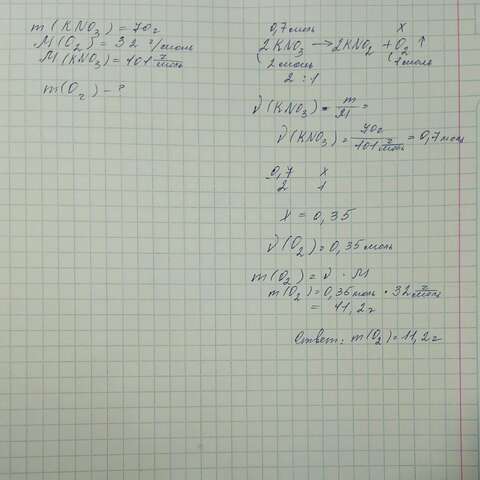 m(KNO₃) = 70г
M(O₂) = 32 г/моль
M(KNO₃) = 101 г/моль
m(O₂) - ?
0,7моль x
2KNO₃ → 2KNO₂ + O₂ ↑
2моль 1моль
2 : 1
ν(KNO₃) = m/M =
ν(KNO₃) = 70г/101 г/моль = 0,7моль
0,7 x
2 1
x = 0,35
ν(O₂) = 0,35моль
m(O₂) = ν · M
m(O₂) = 0,35моль · 32 г/моль
= 11,2г
Ответ: m(O₂) = 11,2г